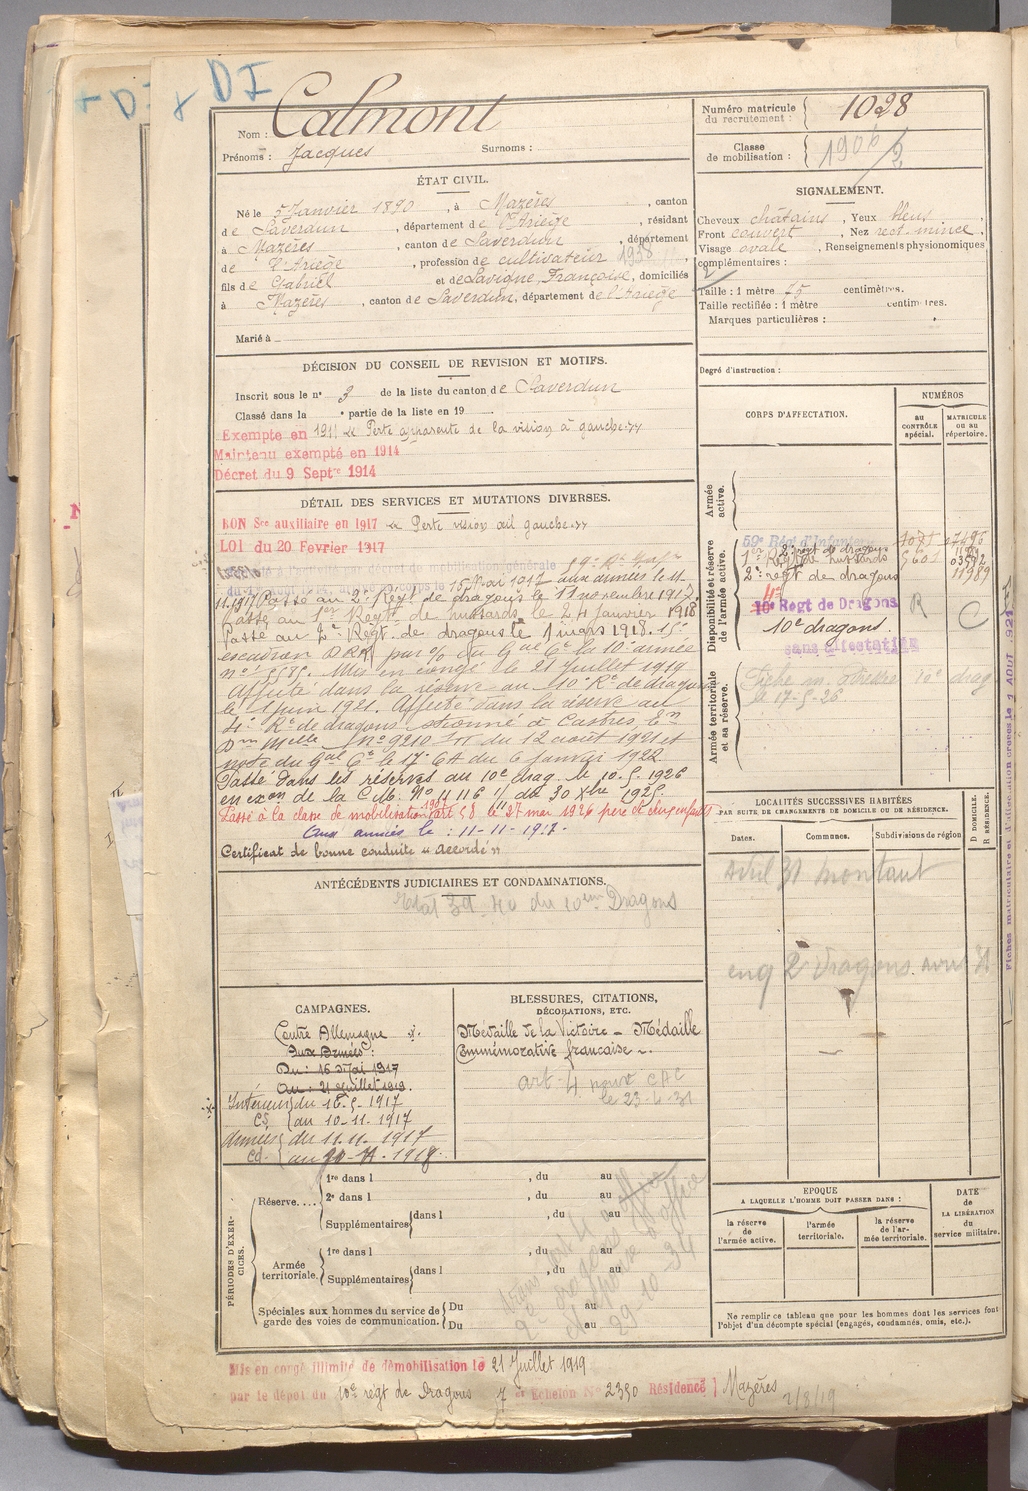 DI
Nom : Calmont
Prénoms : Jacques Surnoms :
Numéro matricule du recrutement : 1028
Classe de mobilisation : 1906/2
ÉTAT CIVIL.
Né le 5 Janvier 1890, à Mazères, canton
de Saverdun, département de l'Ariège, résidant
à Mazères, canton de Saverdun, département
de l'Ariège, profession de cultivateur 1938,
fils de Gabriel et de Lavigne, Françoise, domiciliés
à Mazères, canton de Saverdun, département de l'Ariège
Marié à
SIGNALEMENT.
Cheveux châtains, Yeux bleus,
Front couvert, Nez rect. mince,
Visage ovale, Renseignements physionomiques
complémentaires :
Taille : 1 mètre 75 centimètres.
Taille rectifiée : 1 mètre centimètres.
Marques particulières :
Degré d'instruction :
DÉCISION DU CONSEIL DE REVISION ET MOTIFS.
Inscrit sous le n° 3 de la liste du canton de Saverdun
Classé dans la e partie de la liste en 19
Exempté en 1911 « Perte apparente de la vision à gauche »
Maintenu exempté en 1914
Décret du 9 Septre 1914
DÉTAIL DES SERVICES ET MUTATIONS DIVERSES.
BON Sce auxiliaire en 1917 « Perte vision œil gauche »
LOI du 20 Fevrier 1917
décret de mobilisation générale
corps le 15 Mai 1917 aux armées le 11
11.1917 Passé au 2e Régt de dragons le 11 novembre 1917.
Passé au 1er Régt de hussards le 24 Janvier 1918
Passé au 2e Regt. de dragons le 1 mars 1918. 15e
escadron
par du Gal Ct la 10e armée
n° 5585. Mis en congé le 21 Juillet 1919
Affecté dans la réserve au 10e Rt de dragons
le 1 juin 1921. Affecté dans la réserve au
4e Rt de dragons stationné à Castres, En
Dion Melle n° 9210 du 12 août 1921 et
note du Gal Ct le 17e CA du 6 janvier 1922.
Passé dans les réserves au 10e drag. le 10.5.1926
en exon de la C.M. N° 11116 1/ du 30 Xbre 1925.
Passé à la classe de mobilisation 1907 art 58 le 27 mai 1926 père de deux enfants
Aux armées le : 11-11-1917.
Certificat de bonne conduite « accordé »
CORPS D'AFFECTATION.
NUMÉROS
au CONTRÔLE spécial.
MATRICULE ou au répertoire.
Armée active.
Disponibilité et réserve de l'armée active.
59e Régt d'Infanterie
2e regt de dragons
1er Régt de hussards
2e regt de dragons 11989
10e Regt de Dragons R C
10e dragons.
sans affectation
Armée territoriale et sa réserve.
10e drag
le 17-5-26.
LOCALITÉS SUCCESSIVES HABITÉES
PAR SUITE DE CHANGEMENTS DE DOMICILE OU DE RÉSIDENCE.
Dates. Communes. Subdivisions de région
D DOMICILE. R RÉSIDENCE.
Avril 31 Montaut
enq 2e dragons avril 31
Fiches matriculaire et d'affectation créées le 1 AOUT 1921
ANTÉCÉDENTS JUDICIAIRES ET CONDAMNATIONS.
Etat 39-40 du 10em Dragons
CAMPAGNES.
Contre Allemagne
Aux Armées :
Du : 16 Mai 1917
Au : 21 Juillet 1919.
Intérieur du 16.5.1917
CS au 10-11-1917
Armées du 11.11.1917
cd.
BLESSURES, CITATIONS,
DÉCORATIONS, ETC.
Médaille de la Victoire – Médaille
Commémorative française
art. 4 pour CAC
le 23-4-31
PÉRIODES D'EXERCICES.
Réserve....
1re dans l , du au
2e dans l , du au
Supplémentaires dans l , du au
Armée territoriale.
1re dans l , du au
Supplémentaires dans l , du au
Spéciales aux hommes du service de garde des voies de communication.
Du au
Du au
29-10-34
EPOQUE
A LAQUELLE L'HOMME DOIT PASSER DANS :
la réserve de l'armée active.
l'armée territoriale.
la réserve de l'armée territoriale.
DATE de LA LIBÉRATION du service militaire.
Ne remplir ce tableau que pour les hommes dont les services font
l'objet d'un décompte spécial (engagés, condamnés, omis, etc.).
Mis en congé illimité de démobilisation le 21 Juillet 1919
par le dépot du 10e regt de Dragons 7 e Echelon N° 2350 Résidence Mazères
2/8/19